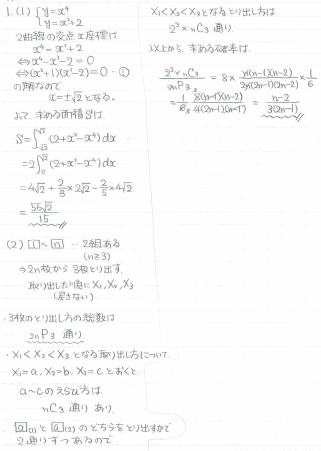 1. (1) { y=x⁴
y=x²+2
2曲線の交点x座標は
x⁴=x²+2
⇔x⁴-x²-2=0
⇔(x²+1)(x²-2)=0 …①
の解なので
x=±√2となる。
よって、求める面積Sは、
S=∫_{-√2}^{√2}(2+x²-x⁴)dx
=2∫_0^{√2}(2+x²-x⁴)dx
=4√2+2/3×2√2-2/5×4√2
=56√2/15
(2) 1~n … 2組ある
(n≧3)
⇒2n枚から3枚とり出す。
取り出した順にX₁, X₂, X₃
(戻さない)
・3枚のとり出し方の総数は
2nP3 通り
・X₁<X₂<X₃となる取り出し方について、
X₁=a, X₂=b, X₃=cとおくと
a~cのえらび方は
nC3 通りあり、
a(1)とa(2)のどちらをとり出すかで
2通りずつあるので
X₁<X₂<X₃となるとり出し方は、
2³×nC3 通り。
以上から、求める確率は、
2³×nC3/2nP3=8×n(n-1)(n-2)/2n(2n-1)(2n-2)×1/6
=1/6 8(n-1)(n-2)/4(2n-1)(n-1)=n-2/3(2n-1)